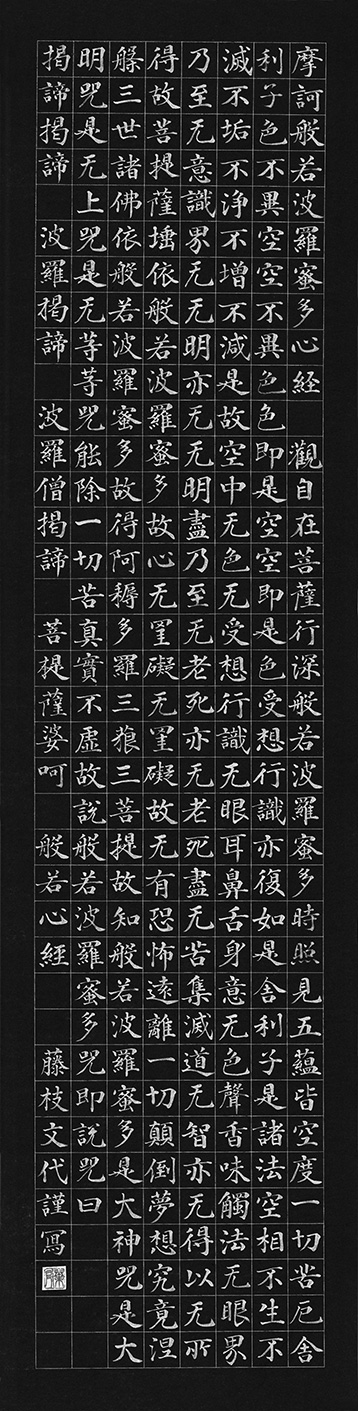 摩訶般若波羅蜜多心経　觀自在菩薩行深般若波羅蜜多時照見五蘊皆空度一切苦厄舍
利子色不異空空不異色色即是空空即是色受想行識亦復如是舍利子是諸法空相不生不
滅不垢不浄不增不減是故空中无色无受想行識无眼耳鼻舌身意无色聲香味觸法无眼界
乃至无意識界无无明亦无无明盡乃至无老死亦无老死盡无苦集滅道无智亦无得以无所
得故菩提薩埵依般若波羅蜜多故心无罣礙无罣礙故无有恐怖遠離一切顛倒夢想究竟涅
槃三世諸佛依般若波羅蜜多故得阿耨多羅三藐三菩提故知般若波羅蜜多是大神咒是大
明咒是无上咒是无等等咒能除一切苦真實不虛故說般若波羅蜜多咒即說咒曰
揭諦揭諦　波羅揭諦　波羅僧揭諦　菩提薩婆呵　般若心経　　藤枝文代謹寫